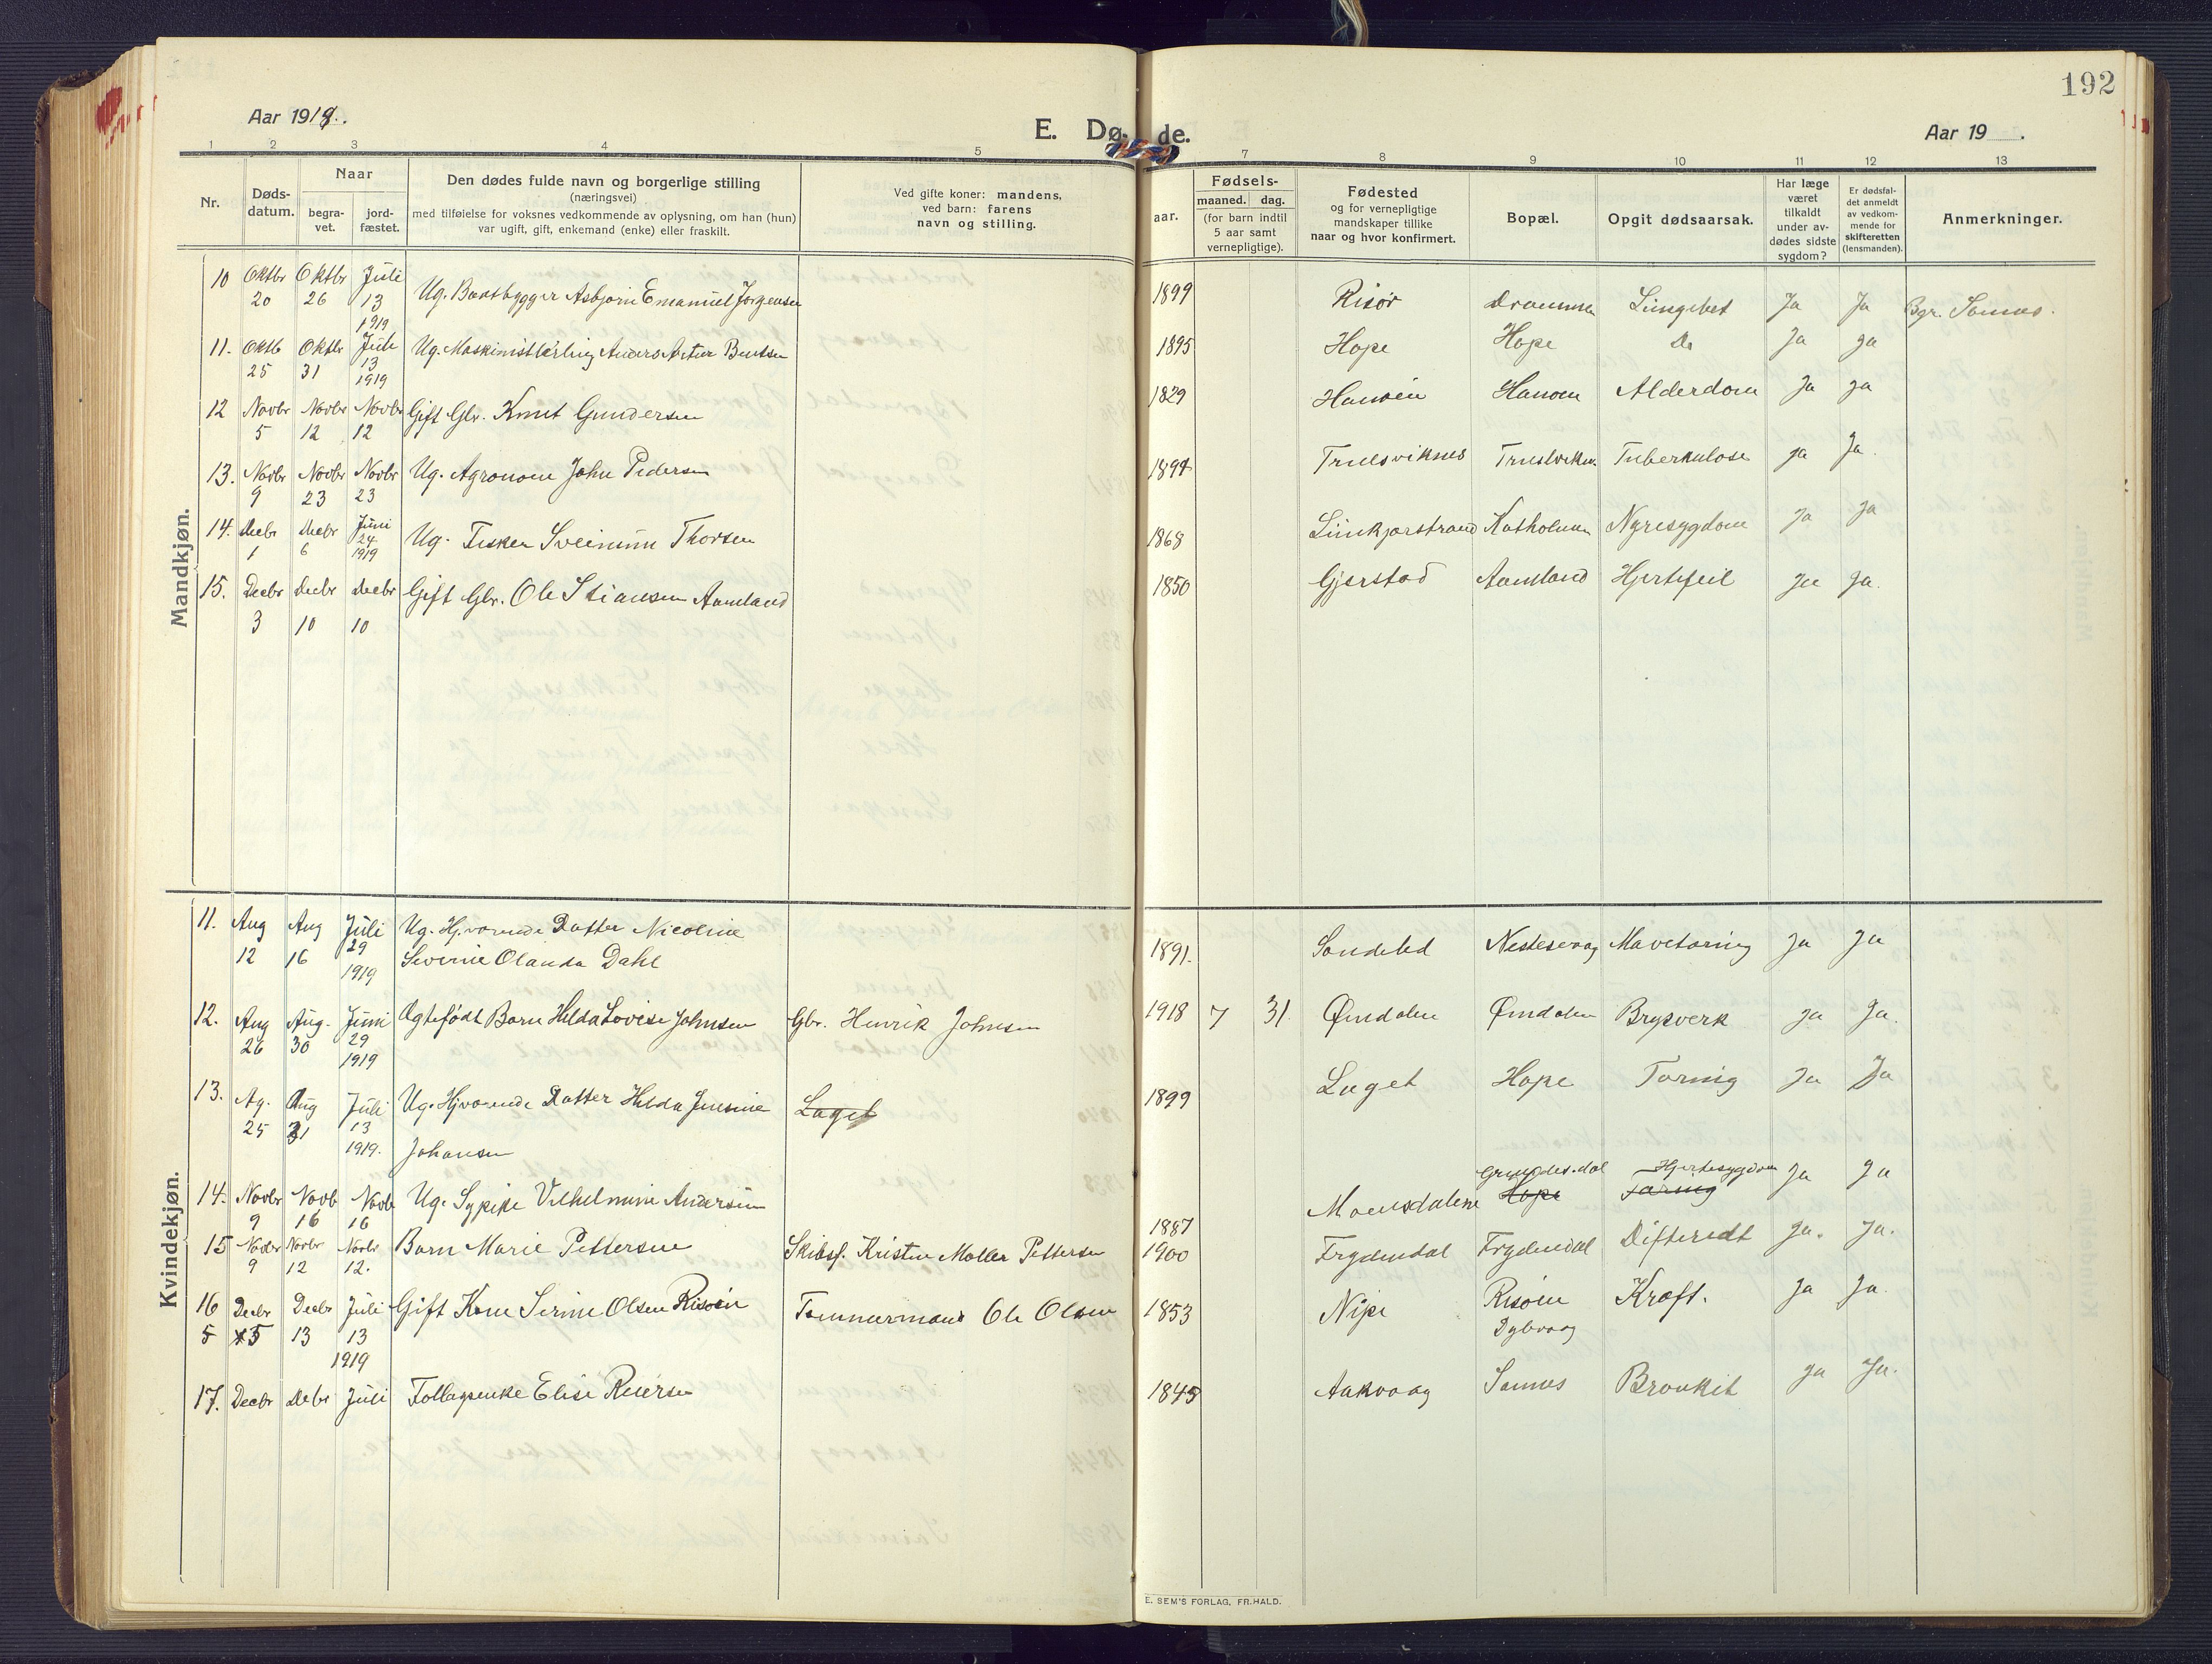 192
Aar 1918.
E. Dø- de.
Aar 19 .
1 2 3 4 5 7 8 9 10 11 12 13
Nr.
Døds-
datum.
Naar
begra-
vet.
jord-
fæstet.
Den dødes fulde navn og borgerlige stilling
(næringsvei)
med tilføielse for voksnes vedkommende av oplysning, om han (hun)
var ugift, gift, enkemand (enke) eller fraskilt.
Ved gifte koner: mandens,
ved barn: farens
navn og stilling.
aar.
Fødsels-
maaned. dag.
(for barn indtil
5 aar samt
vernepligtige).
Fødested
og for vernepligtige
mandskaper tillike
naar og hvor konfirmert.
Bopæl.
Opgit dødsaarsak.
Har læge
været
tilkaldt
under av-
dødes sidste
sygdom?
Er dødsfal-
det anmeldt
av vedkom-
mende for
skifteretten
(lensmanden).
Anmerkninger.
Mandkjøn.
10 Oktbr Oktbr Juli Ug. Baatbygger Asbjørn Emanuel Jørgensen 1899 Risør Drammen Lungebet Ja Ja Bgr. Sannes.
20 26 13
1919
11. Oktb Oktbr Juli Ug. Maskinistlærling Anders Artur Bentsen 1895 Hope Hope Do Ja ja
25 31 13
1919
12 Novbr Novbr Novbr Gift Gbr. Knut Gundersen 1829 Hansen Hansen Alderdom Ja ja
5 12 12
13. Novbr Novbr Novbr Ug. Agronom John Pedersen 1894 Truelsviknes Truelsviken Tuberkulose ja Ja.
9 23 23
14. Decbr Decbr Juni Ug. Fisker Sveinum Thorsen 1868 Katholmen Nyresygdom ja ja
1 6 24
1919
15. Decbr Decbr Decbr Gift Gbr. Ole Stiansen Aamland 1850 Gjerstad Aamland Hjertefeil ja ja.
3 10 10
Kvindekjøn.
11. Aug Aug Juli Ug. Hjværende Datter Nicoline
12 16 29 Severine Olanda Dahl 1891. Søndeled Mavetæring ja ja
1919
12. Aug Aug. Juni Ægtefødt Barn Hilda Lovise Johnsen Gbr. Henrik Johnsen 1918 7 31. Ømdalen Ømdalen Brysverk ja Ja.
26 30 29
1919
13. Ag. Aug Juli Ug. Hjværende Datter Hilda Jensine Laget 1899 Laget Hope Tæring Ja Ja
25 31 13
1919. Johansen
14. Novbr Novb Novb Ug. Sypike Vilhelmine Andersen 1887 Moensdalene Hope Tæring Hjertesygdom Ja ja
9 16 16
15 Novbr Novbr Novbr Barn Marie Pettersen Skibsf. Kristen Møller Pettersen 1900 Frydendal Frydendal Difteridt Ja. Ja.
9 12 12.
16 Decbr Decbr Juli Gift Kone Serine Olsen Risøen Tømmermand Ole Olsen 1853 Nipe Risøen Kræft. Ja Ja.
5 5 13 13 Dybvaag
1919
17. Decbr Debr Juli Follagsenke Elise Reiersen 1845 Aakvaag Sannes Bronkit ja Ja.
E. SEM'S FORLAG, FR.HALD.